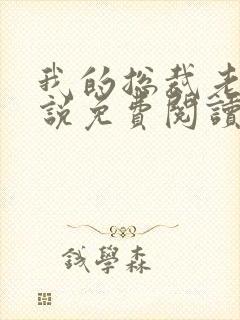 我的总裁老
說免費閱讀
錢學森